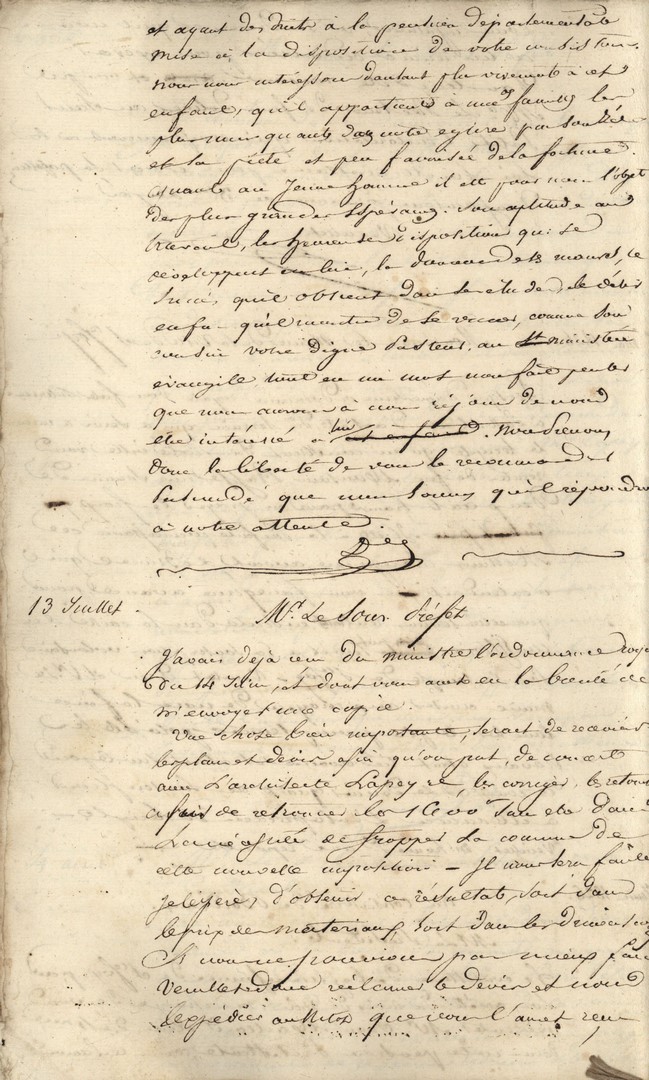 et ayant des droits à la pension départementale
mise à la disposition de votre consistoire.
nous nous intéressons d'autant plus vivement à cet
enfant, qu'il appartient à une des familles les
plus marquantes dans notre eglise par son zèle
et sa piété et peu favorisée de la fortune.
quant au jeune homme il est pour nous l'objet
des plus grandes espérances. Son aptitude au
travail, les heureuses dispositions qui se
développent en lui, la douceur de ses mœurs, le
succès qu'il obtient dans ses études, le désir
enfin qu'il montre de se vouer, comme son
cousin votre digne Pasteur, au St ministère
évangile tout en un mot nous fait penser
que nous aurons à nous réjouir de nous
etre intéressé à lui cet enfant. Nous prenons
donc la liberté de vous le recommander
persuadé que nous sommes qu'il répondra
à notre attente.
13 Juillet
Mr. Le Sous-Préfet
J'avais dejà reçu du ministre l'ordonnance roya
du 14 Juin, et dont vous avez eu la bonté de
m'envoyer une copie.
Une chose bien importante, serait de recevoir
les plans et devis afin qu'on put, de concert
avec l'architecte Lapeyre, les corriger, les
afin de retrouver les 1600 f
la nécessité de frapper la commune de
cette nouvelle imposition – Il nous sera facile
je l'espère, d'obtenir ce résultat, soit dans
le prix des materiaux, soit dans les
Si nous ne pouvions pas mieux faire
Veuillez donc réclamer le devis et nous
l'expédier aussitot que vous l'aurez reçu